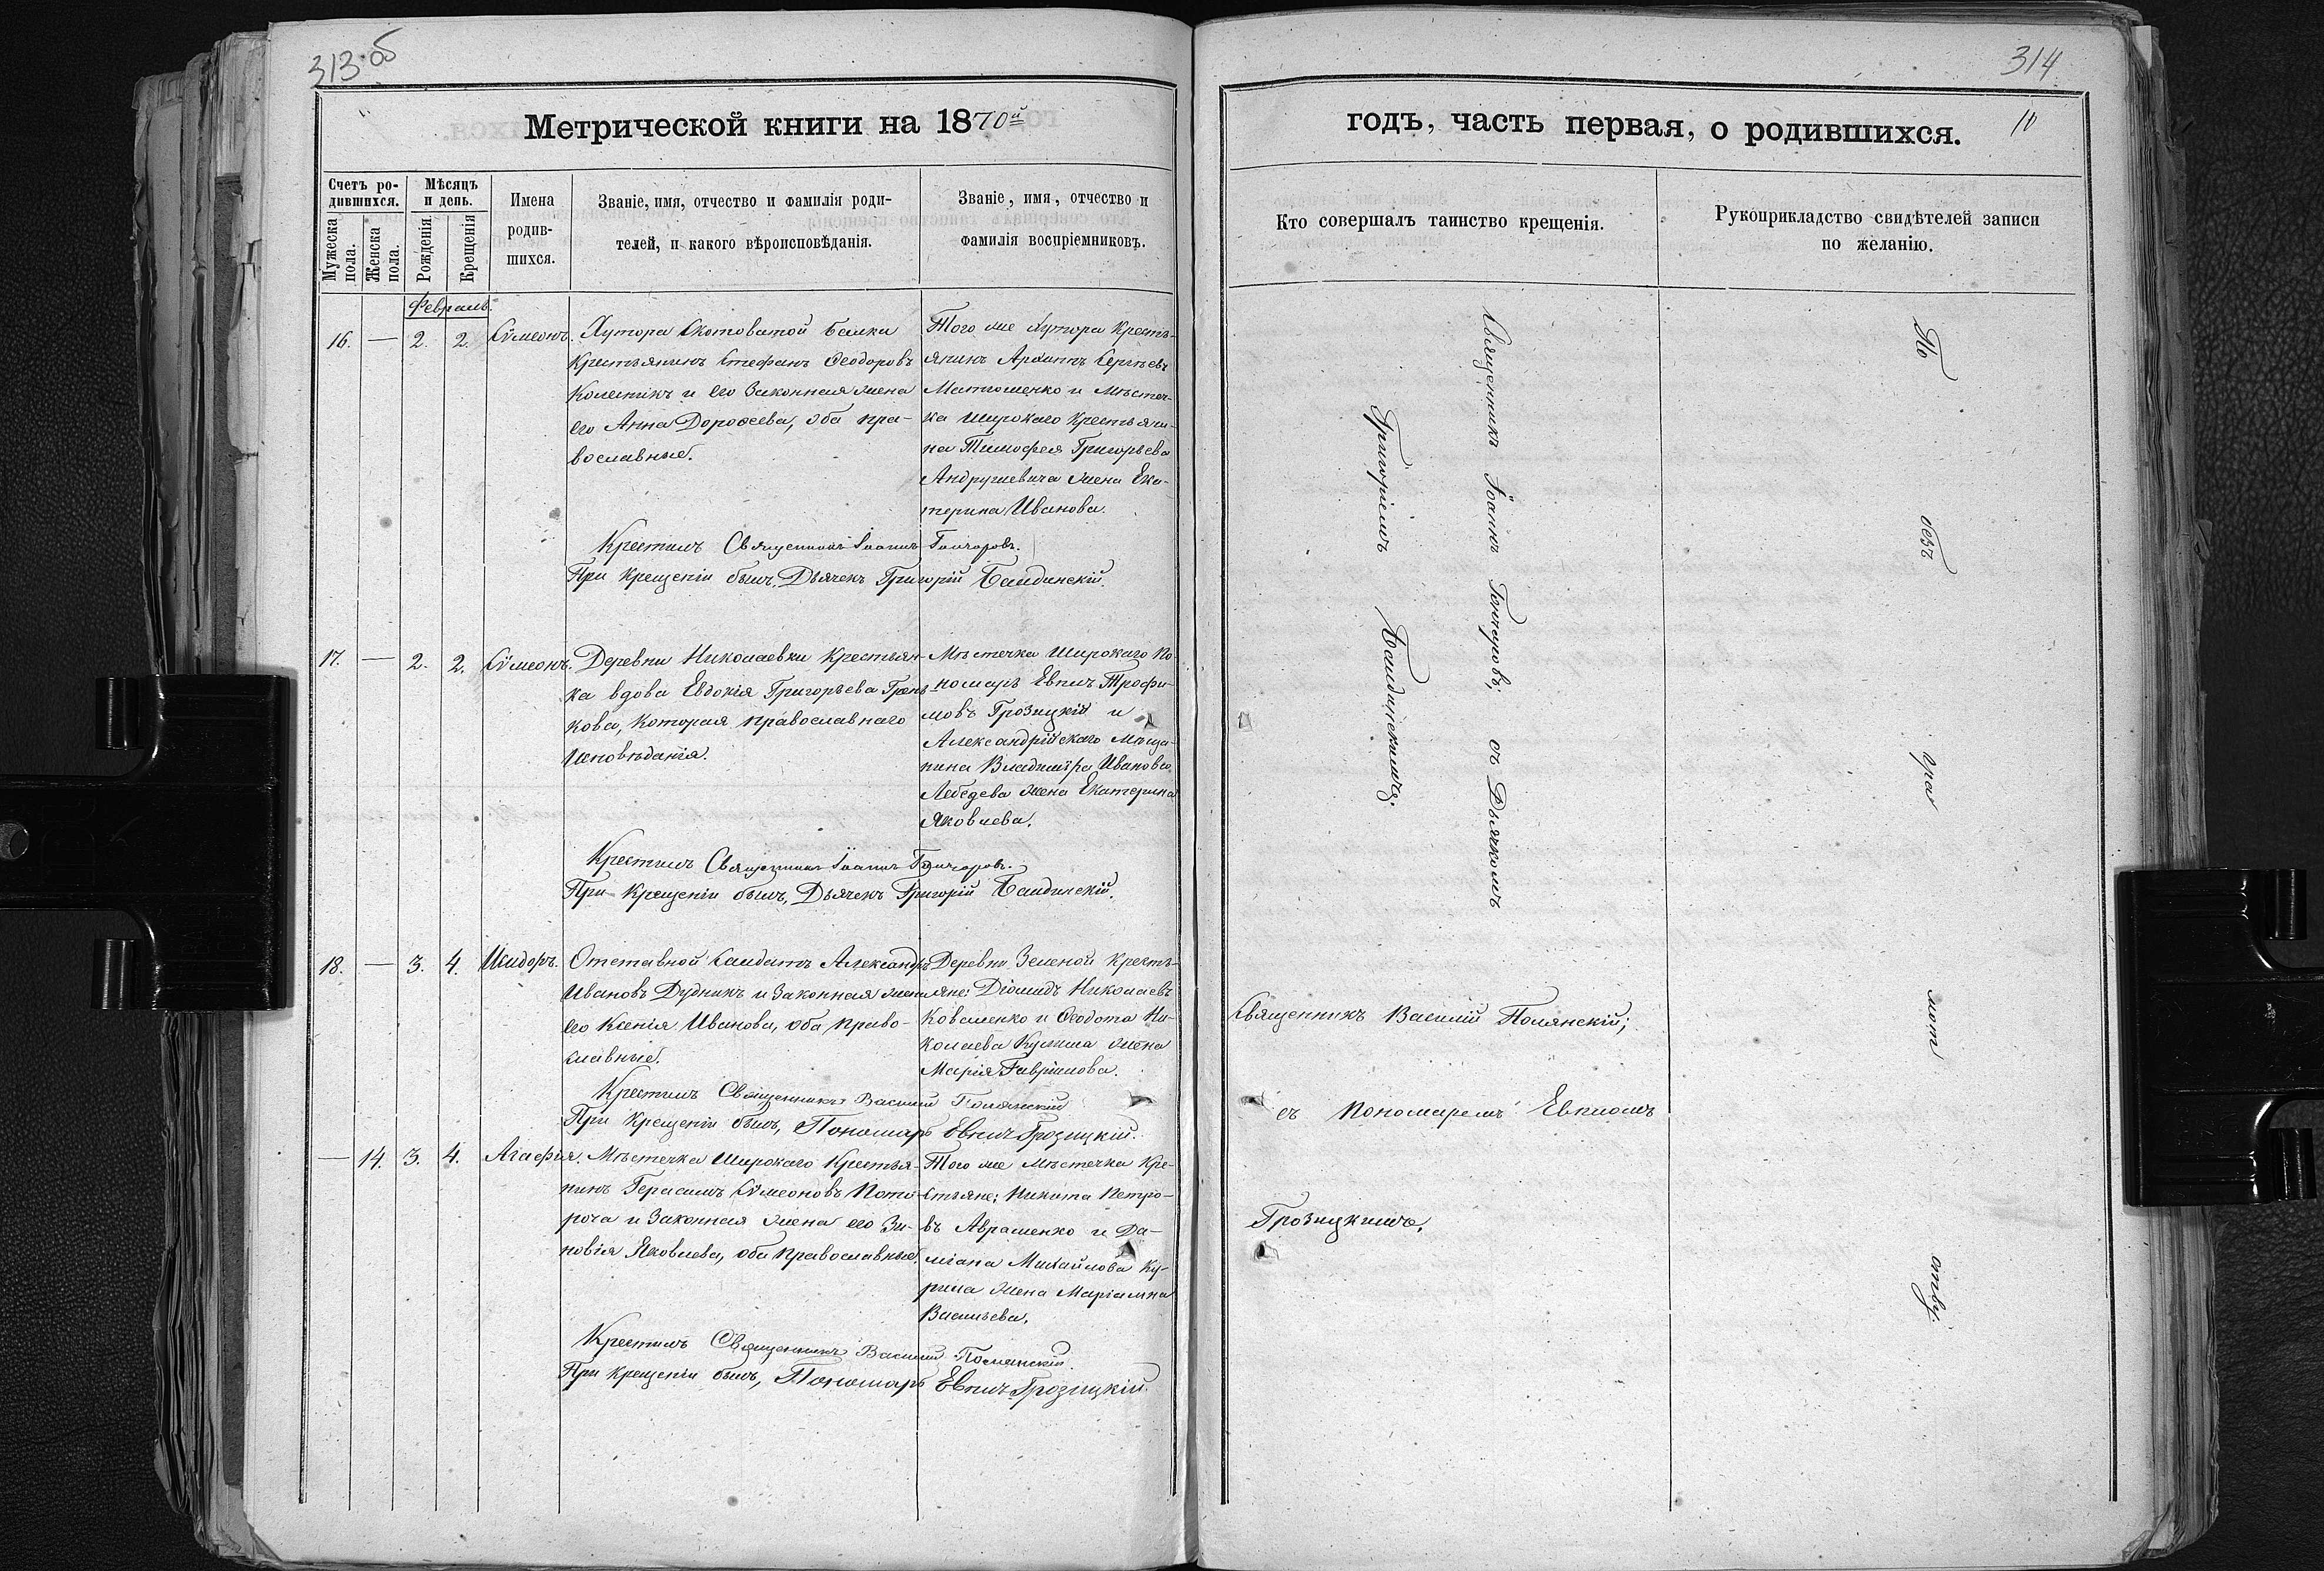 313 об
Метрической книги на 1870й
Счетъ ро-
дившихся.
Мужеска
пола.
Женска
пола.
Мѣсяцъ
и день.
Рожденія.
Крещенія
Имена
родив-
шихся.
Званіе, имя, отчество и фамилія роди-
телей, и какого вѣроисповѣданія.
Званіе, имя, отчество и
фамилія воспріемниковъ.
Февраль.
16. — 2. 2. Сѵмеонъ.
Хутора Скотоватой Балки
Крестьянинъ Стефанъ Ѳеодоровъ
Колесникъ и его Законная жена
его Анна Дороѳеева, оба пра-
вославные.
Того же Хутора Кресть-
янинъ Архипъ Сергѣевъ
Матюшенко и Мѣстеч-
ка Широкаго Крестьяни-
на Тимофея Григорьева
Андрушевича жена Ека-
терина Иванова.
Крестилъ Священникъ Іоаннъ Гончаровъ.
При Крещеніи былъ, Дьячекъ Григорій Балдинскій.
17. — 2. 2. Сѵмеонъ.
Деревни Николаевки Крестьян-
ка вдова Евдокія Григорьева
кова, которая православнаго
Исповѣданія.
Мѣстечка Широкаго По-
номарь Евпилъ Трофи-
мовъ Грозицкій и
Александрійскаго Мѣща-
нина Владиміра Иванова
Лебедева жена Екатерина
Яковлева.
Крестилъ Священникъ Іоаннъ Гончаровъ.
При Крещеніи былъ, Дьячекъ Григорій Балдинскій.
18. — 3. 4. Исидоръ.
Отставной Солдатъ Александръ
Ивановъ Дудникъ и Законная жена
его Ксенія Иванова, оба право-
славные.
Деревни Зеленой Кресть-
яне: Діомидъ Николаевъ
Коваленко и Ѳеодота Ни-
колаева жена
Марія Гавріилова.
Крестилъ Священникъ Василій Полянскій
При Крещеніи былъ, Пономарь Евпилъ Грозицкій.
— 14. 3. 4. Агафія.
Мѣстечка Широкаго Крестья-
нинъ Герасимъ Сѵмеоновъ Пото-
роча и Законная жена его Зи-
новія Яковлева, оба православные.
Того же Мѣстечка Кре-
стьяне: Никита Петро-
въ Авраменко и Да-
міана Михайлова Ку-
рила жена Маріамна
Васильева.
Крестилъ Священникъ Василій Полянскій.
При Крещеніи былъ, Пономарь Евпилъ Грозицкій.
314
10
годъ, часть первая, о родившихся.
Кто совершалъ таинство крещенія.
Рукоприкладство свидѣтелей записи
по желанію.
Священникъ Іоаннъ Гончаровъ; съ Дьячкомъ
Григоріемъ Балдинскимъ.
Священникъ Василій Полянскій;
съ Пономаремъ Евпиломъ
Грозицкимъ.
По безъ гра мот ству.